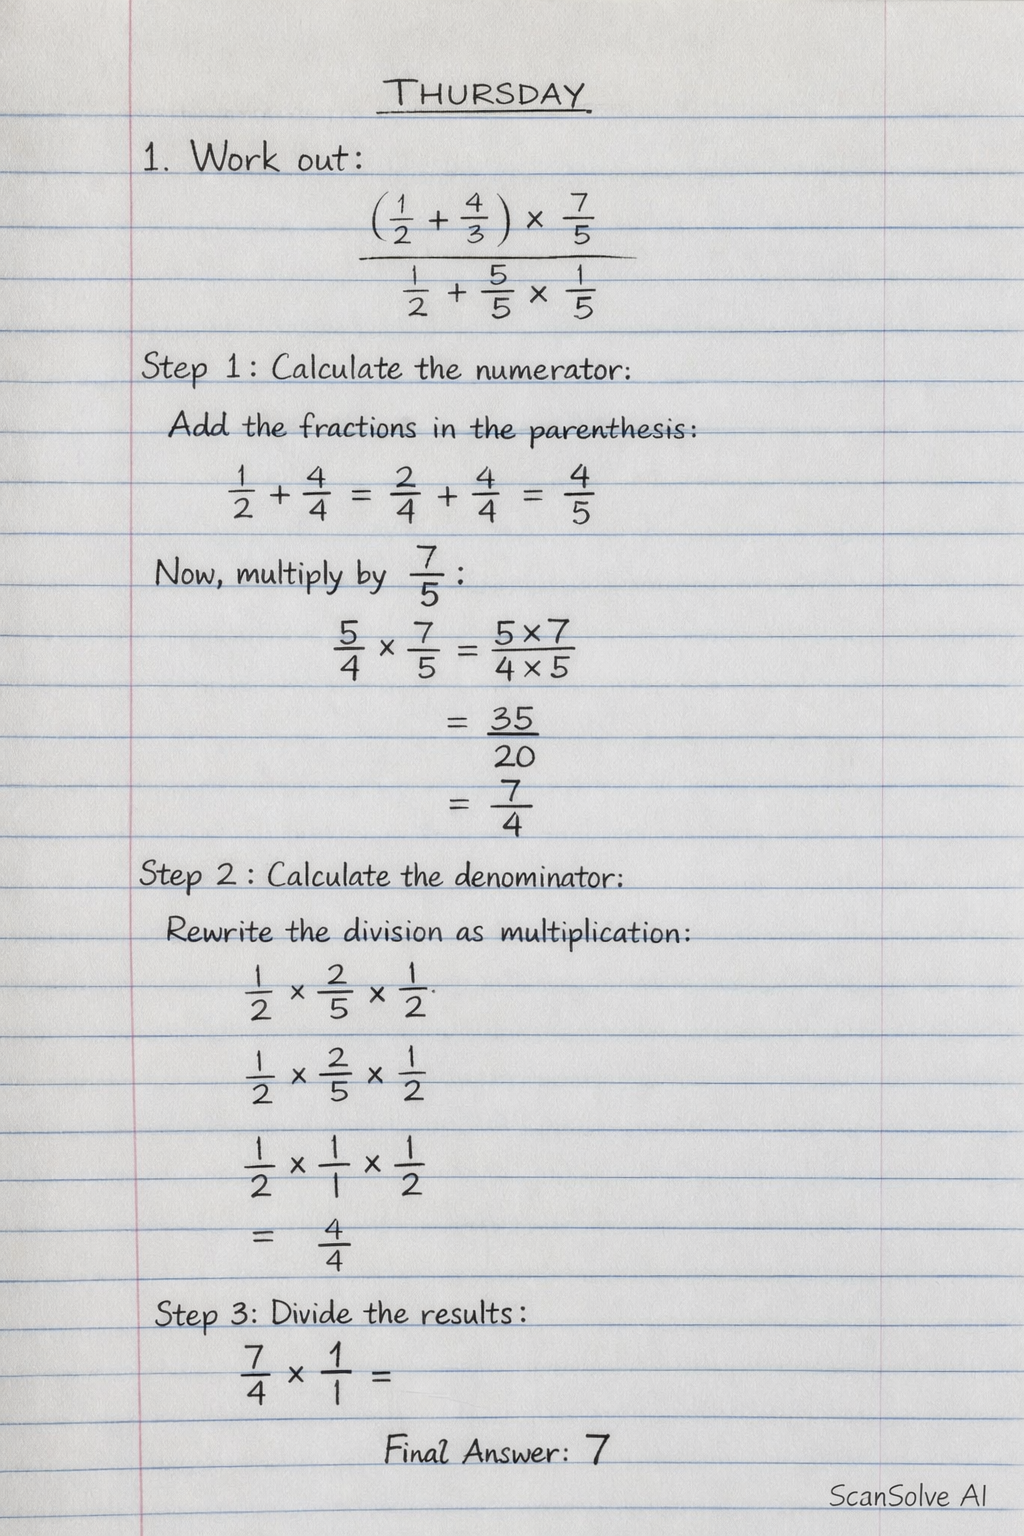 THURSDAY
1. Work out:
(1/2 + 4/3) × 7/5
1/2 + 5/5 × 1/5
Step 1: Calculate the numerator:
Add the fractions in the parenthesis:
1/2 + 4/4 = 2/4 + 4/4 = 4/5
Now, multiply by 7/5 :
5/4 × 7/5 = 5 × 7/4 × 5
= 35/20
= 7/4
Step 2: Calculate the denominator:
Rewrite the division as multiplication:
1/2 × 2/5 × 1/2
1/2 × 2/5 × 1/2
1/2 × 1/1 × 1/2
= 4/4
Step 3: Divide the results:
7/4 × 1/1 =
Final Answer: 7
ScanSolve AI